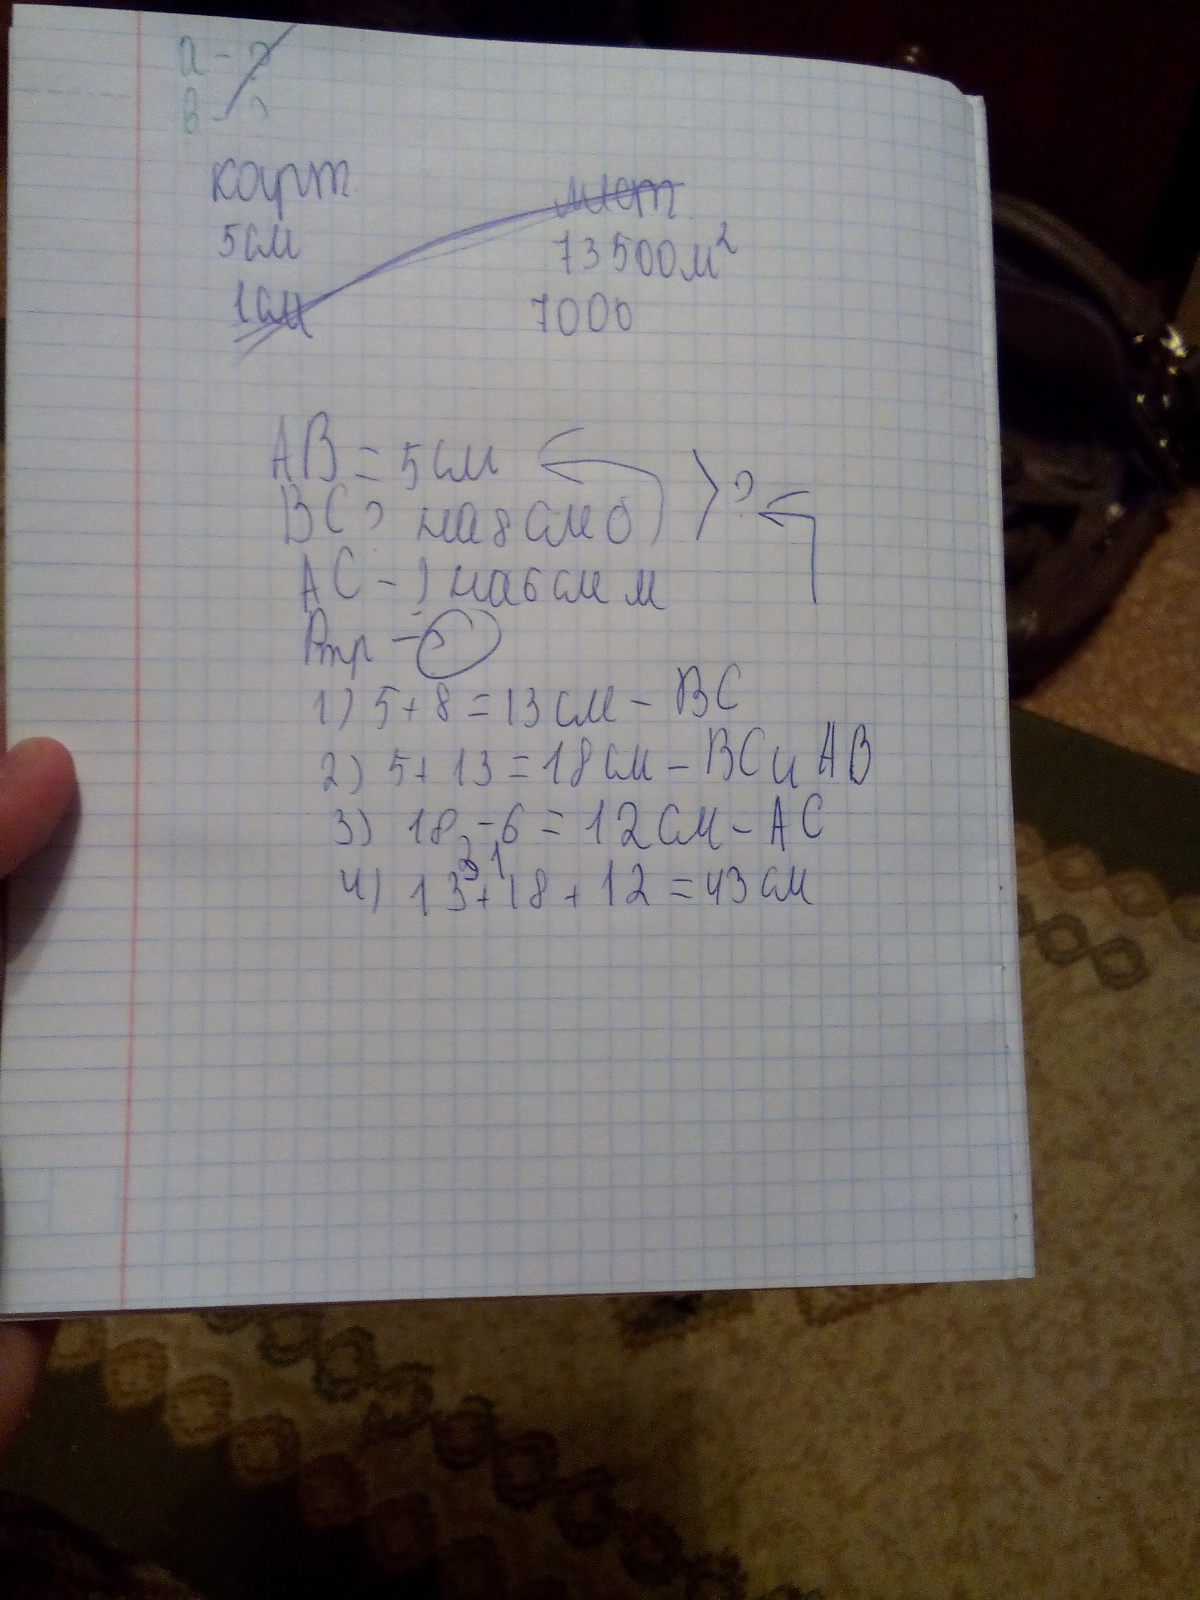 a - ?
в - ?
карт мест
5см 73500м²
1см 7000
AB = 5см
BC ? на 8 см б } ?
AC - ? на 6 см м
Pтр - ?
1) 5 + 8 = 13 см - BC
2) 5 + 13 = 18 см - BC и AB
3) 18 - 6 = 12 см - AC
4) 13 + 18 + 12 = 43 см